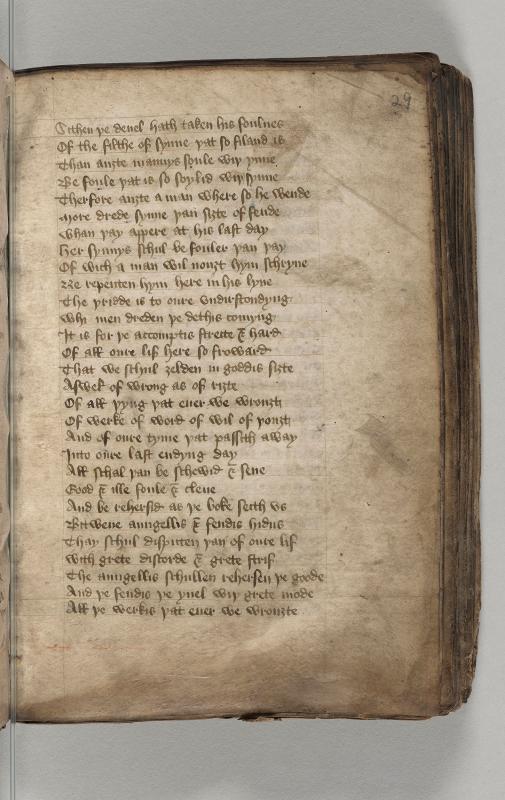 29
Sithen þe deuel hath taken his foulnes
Of the filthe of synne þat so filand is
Than auȝte mannys soule wiþ ynne
Be foule þat is so soylid wiþ synne
Therfore auȝte a man where so he wende
More drede synne þan siȝte of fende
Whan þay appere at his last day
Her synnys schul be fouler þan þay
Of wich a man wil nouȝt hym schryue
Ne repenten hym here in his lyue
The þridde is to oure vndirstondyng
Why men dreden þe dethis comyng
It is for þe accomptis streite & hard
Of all oure lif here so froward
That we schul ȝelden in goddis siȝte
Aswel of wrong as of riȝte
Of all þyng þat euer we wrouȝt
Of werke of word of wil of þouȝt
And of oure tyme þat passith away
Into oure last endyng day
All schal þan be schewid & sene
Good & ille foule & clene
And be rehersid as þe boke seith vs
Bitwene aungellis & fendis hidus
Thay schul disputen þan of oure lif
With grete discorde & grete strif
The aungellis schullen rehersen þe goode
And þe fendis þe yuel wiþ grete mode
All þe werkis þat euer we wrouȝte